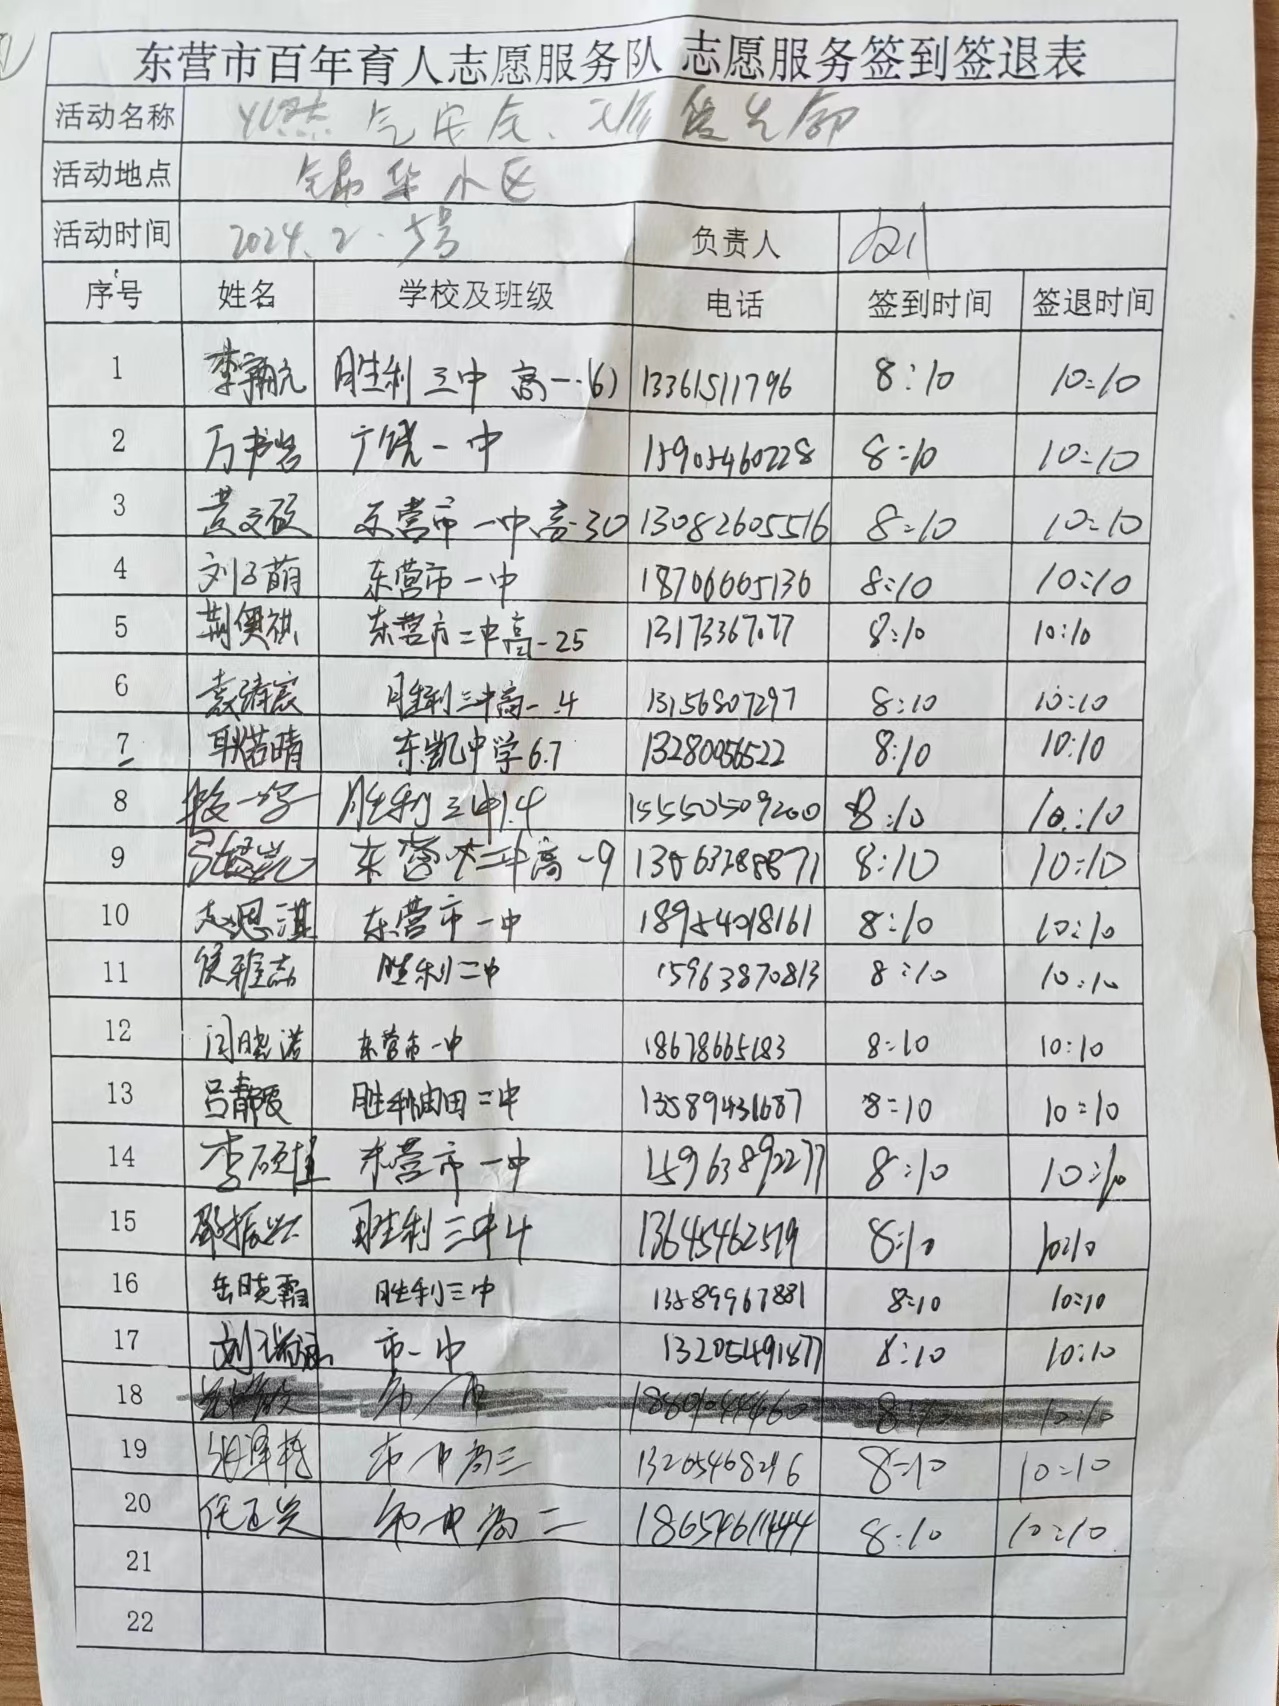 东营市百年育人志愿服务队 志愿服务签到签退表
活动名称 燃气安全、
活动地点 锦华小区
活动时间 2024.2.5号 负责人
序号 姓名 学校及班级 电话 签到时间 签退时间
1 李 胜利三中 高一.(6) 13361511796 8:10 10:10
2 万书岩 广饶一中 15905460228 8:10 10:10
3 黄文硕 东营市一中高一30 13082605516 8:10 10:10
4 刘子萌 东营市一中 18706605130 8:10 10:10
5 荆 祺 东营市二中高一25 13173367077 8:10 10:10
6 袁 宸 胜利三中高一.4 13156807297 8:10 10:10
7 耿若晴 东凯中学6.7 13280056522 8:10 10:10
8 胜利三中1.4 8:10 10:10
9 东营市二中高一9 8:10 10:10
10 赵恩淇 东营市一中 18954018161 8:10 10:10
11 侯雅 胜利二中 15963870813 8:10 10:10
12 闫晓诺 东营市一中 18678665183 8:10 10:10
13 吕静 胜利油田二中 13589431687 8:10 10:10
14 李硕 东营市一中 15963892277 8:10 10:10
15 振兴 胜利三中4 13645462519 8:10 10:10
16 岳晓霜 胜利三中 13589967881 8:10 10:10
17 刘 市一中 13205491877 8:10 10:10
18 8:10 10:10
19 市一中高三 13205468296 8:10 10:10
20 任 市一中高二 18654611444 8:10 10:10
21
22